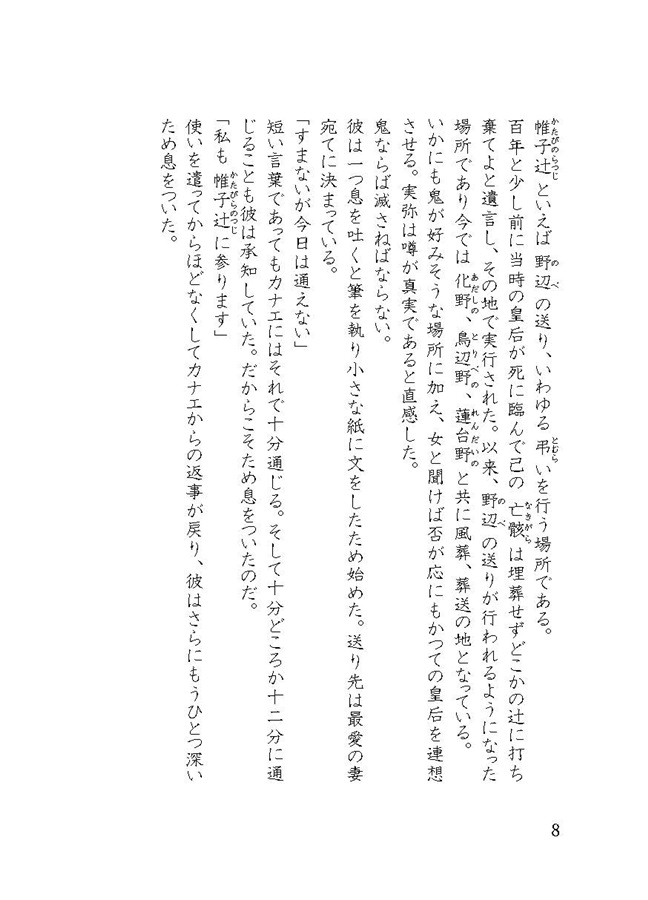 帷子辻といえば野辺の送り、いわゆる弔いを行う場所である。
百年と少し前に当時の皇后が死に臨んで己の亡骸は埋葬せずどこかの辻に打ち
棄てよと遺言し、その地で実行された。以来、野辺の送りが行われるようになった
場所であり今では化野、鳥辺野、蓮台野と共に風葬、葬送の地となっている。
いかにも鬼が好みそうな場所に加え、女と聞けば否が応にもかつての皇后を連想
させる。実弥は噂が真実であると直感した。
鬼ならば滅さねばならない。
彼は一つ息を吐くと筆を執り小さな紙に文をしたため始めた。送り先は最愛の妻
宛てに決まっている。
「すまないが今日は通えない」
短い言葉であってもカナエにはそれで十分通じる。そして十分どころか十二分に通
じることも彼は承知していた。だからこそため息をついたのだ。
「私も帷子辻に参ります」
使いを遣ってからほどなくしてカナエからの返事が戻り、彼はさらにもうひとつ深い
ため息をついた。
8